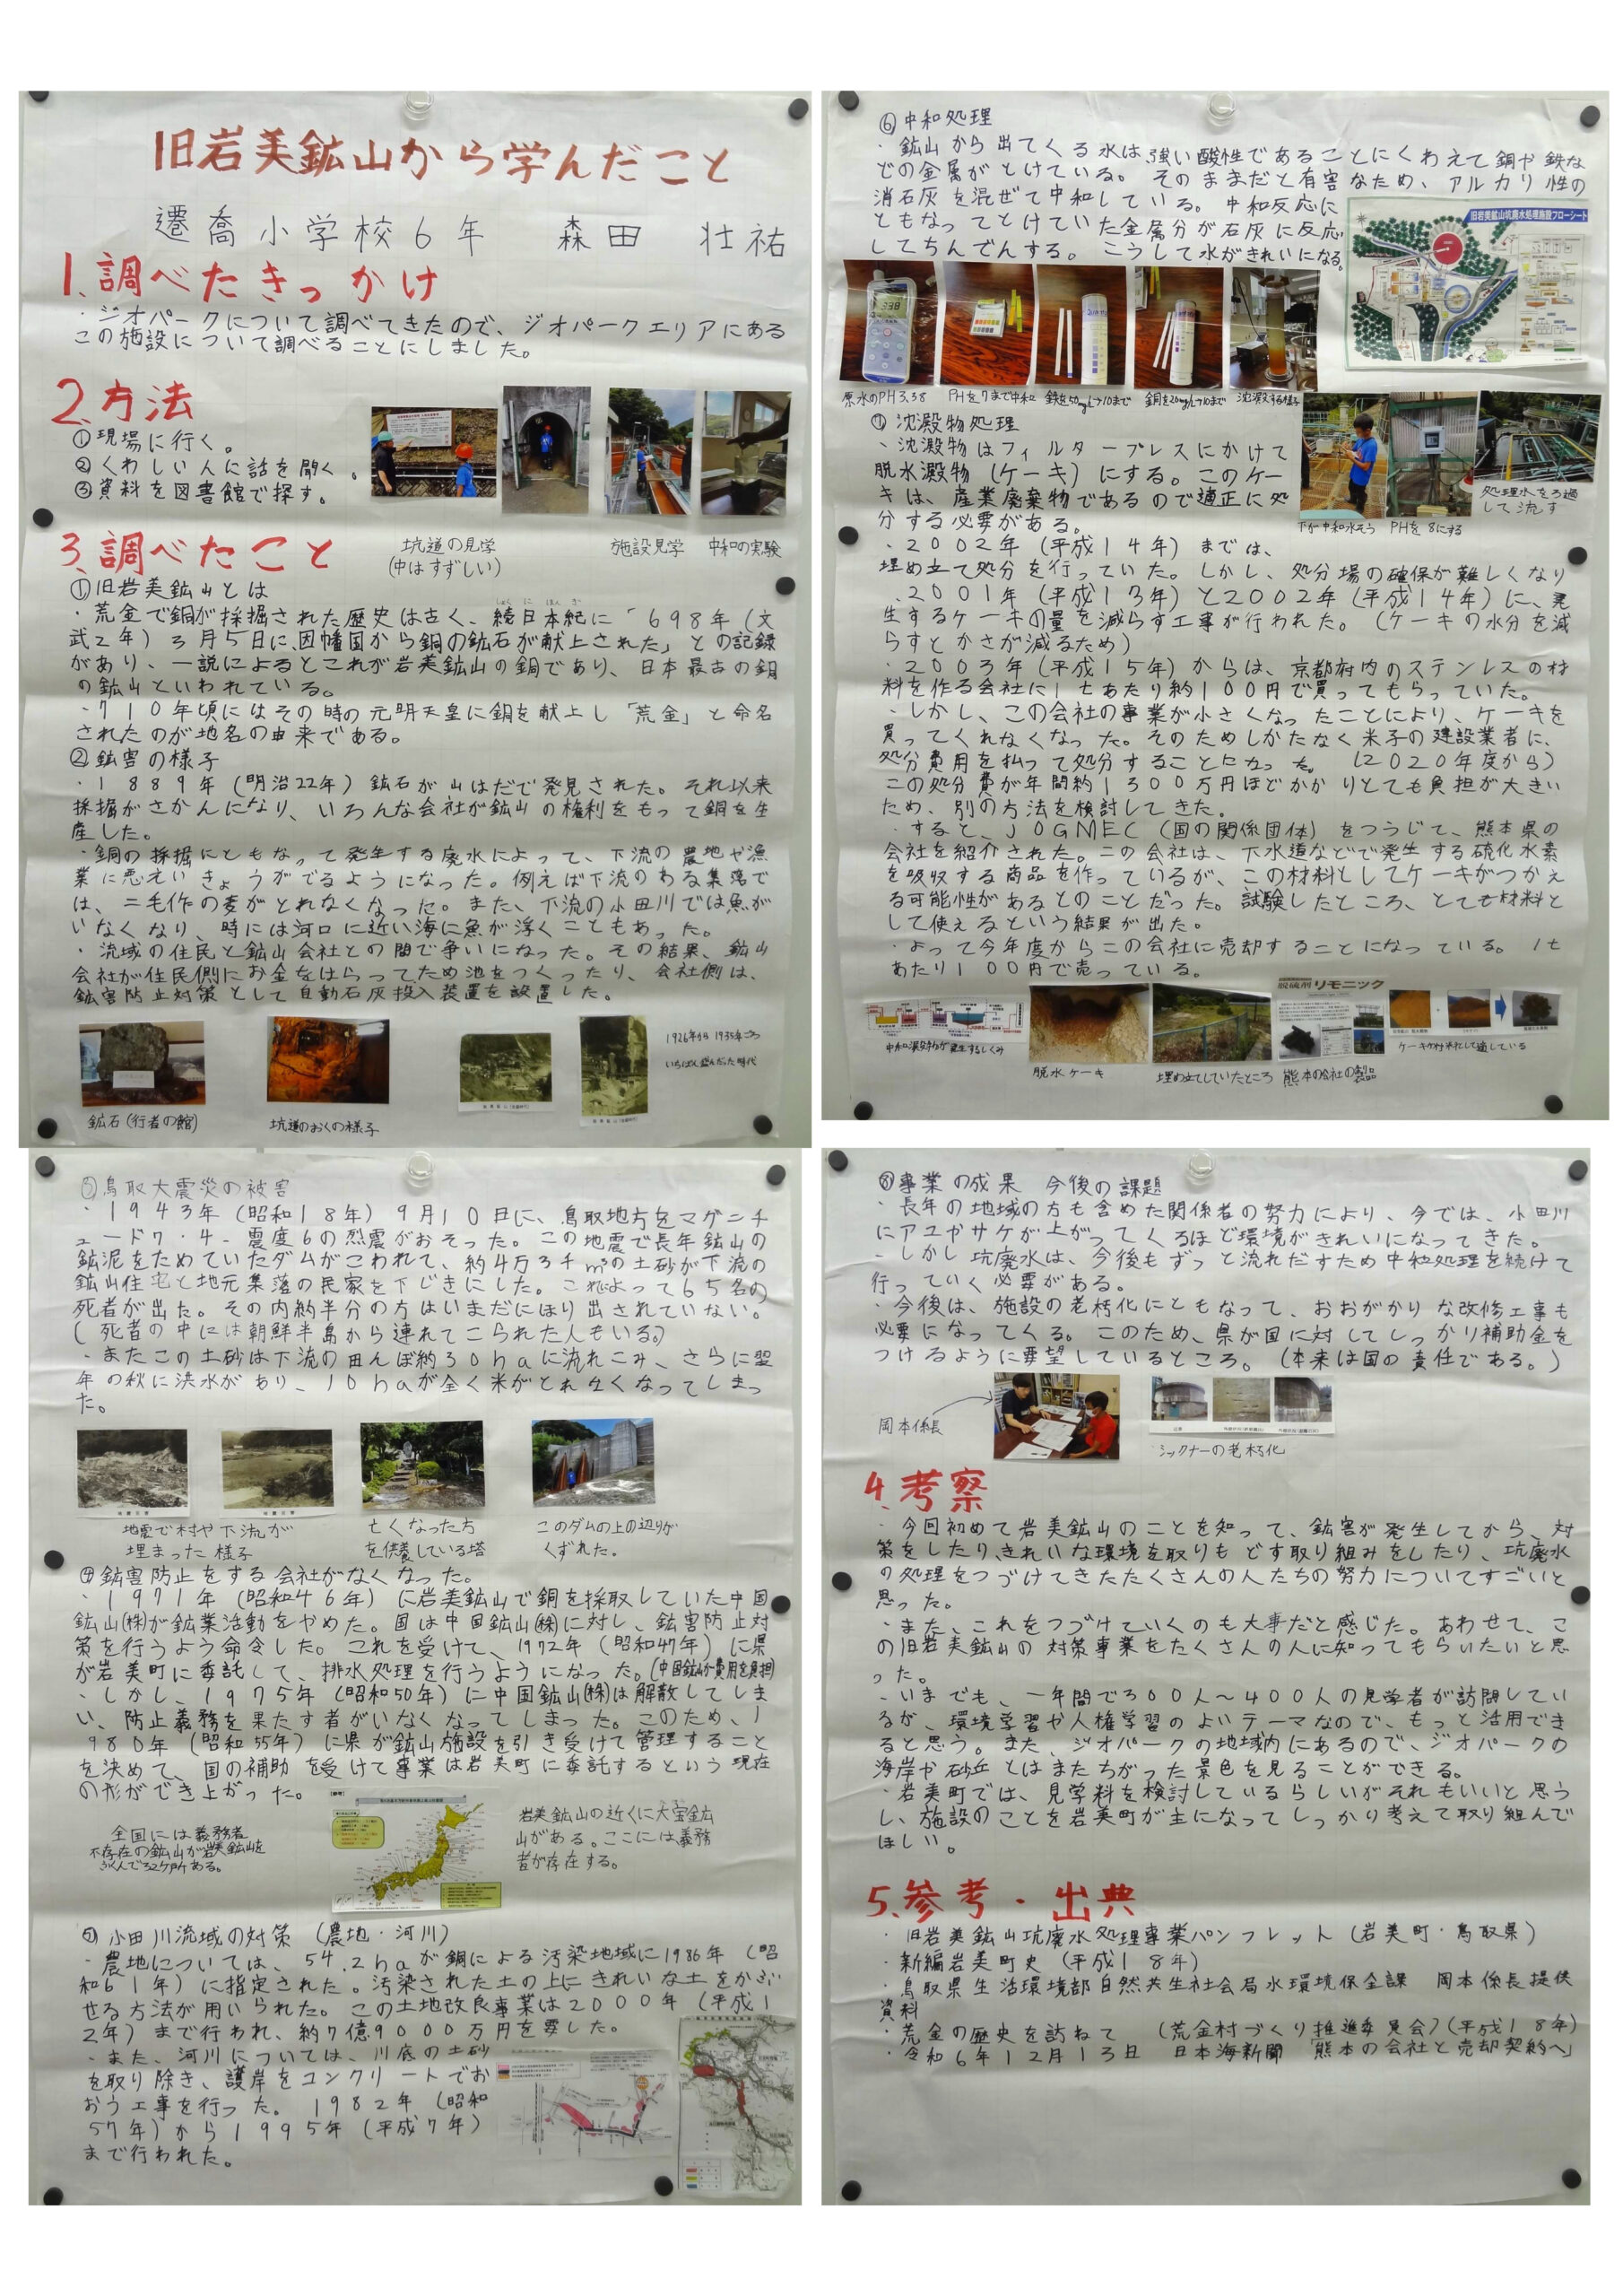 旧岩美鉱山から学んだこと
遷喬小学校6年 森田 壮祐
1.調べたきっかけ
・ジオパークについて調べてきたので、ジオパークエリアにある
この施設について調べることにしました。
2.方法
①現場に行く。
②くわしい人に話を聞く。
③資料を図書館で探す。
坑道の見学
(中はすずしい)
施設見学
中和の実験
3.調べたこと
①旧岩美鉱山とは
・荒金で銅が採掘された歴史は古く、続日本紀に「698年(文
武2年)3月5日に、因幡国から銅の鉱石が献上された」との記録
があり、一説によるとこれが岩美鉱山の銅であり、日本最古の銅
の鉱山といわれている。
・710年頃にはその時の元明天皇に銅を献上し「荒金」と命名
されたのが地名の由来である。
②鉱害の様子
・1889年(明治22年)鉱石が山はだで発見された。それ以来
採掘がさかんになり、いろんな会社が鉱山の権利をもって銅を生
産した。
・銅の採掘にともなって発生する廃水によって、下流の農地や漁
業に悪えいきょうがでるようになった。例えば下流のある集落で
は、二毛作の麦がとれなくなった。また、下流の小田川では魚が
いなくなり、時には河口に近い海に魚が浮くこともあった。
・流域の住民と鉱山会社との間で争いになった。その結果、鉱山
会社が住民側にお金をはらってため池をつくったり、会社側は、
鉱害防止対策として自動石灰投入装置を設置した。
1926年から1935年ごろ
いちばん盛んだった時代
鉱石(行者の館)
坑道のおくの様子
③鳥取大震災の被害
・1943年(昭和18年)9月10日に、鳥取地方をマグニチ
ュード7.4、震度6の烈震がおそった。この地震で長年鉱山の
鉱泥をためていたダムがこわれて、約4万3千㎥の土砂が下流の
鉱山住宅と地元集落の民家を下じきにした。これよって65名の
死者が出た。その内約半分の方はいまだにほり出されていない。
(死者の中には朝鮮半島から連れてこられた人もいる)
・またこの土砂は下流の田んぼ約30haに流れこみ、さらに翌
年の秋に洪水があり、10haが全く米がとれなくなってしまっ
た。
地震で村や下流が
埋まった様子
亡くなった方
を供養している塔
このダムの上の辺りが
くずれた。
④鉱害防止をする会社がなくなった。
・1971年(昭和46年)に岩美鉱山で銅を採取していた中国
鉱山(株)が鉱業活動をやめた。国は中国鉱山(株)に対し、鉱害防止対
策を行うよう命令した。これを受けて、1972年(昭和47年)に県
が岩美町に委託して、排水処理を行うようになった。(中国鉱山が費用を負担)
・しかし、1975年(昭和50年)に中国鉱山(株)は解散してしま
い、防止義務を果たす者がいなくなってしまった。このため、1
980年(昭和55年)に県が鉱山施設を引き受けて管理すること
を決めて、国の補助を受けて事業は岩美町に委託するという現在
の形ができ上がった。
全国には義務者
不存在の鉱山が岩美鉱山を
ふくんで32ヶ所ある。
岩美鉱山の近くに大宝鉱
山がある。ここには義務
者が存在する。
⑤小田川流域の対策(農地・河川)
・農地については、54.2haが銅による汚染地域に1986年(昭
和61年)に指定された。汚染された土の上にきれいな土をかぶ
せる方法が用いられた。この土地改良事業は2000年(平成1
2年)まで行われ、約7億9000万円を要した。
・また、河川については、川底の土砂
を取り除き、護岸をコンクリートでお
おう工事を行った。1982年(昭和
57年)から1995年(平成7年)
まで行われた。
⑥中和処理
・鉱山から出てくる水は、強い酸性であることにくわえて銅や鉄な
どの金属がとけている。そのままだと有害なため、アルカリ性の
消石灰を混ぜて中和している。中和反応に
ともなってとけていた金属分が石灰に反応
してちんでんする。こうして水がきれいになる。
旧岩美鉱山坑廃水処理施設フローシート
原水のPH3.38
PHを7まで中和
鉄を50mg/L→10まで
銅を20mg/L→10まで
沈澱する様子
⑦沈澱物処理
・沈澱物はフィルタープレスにかけて
脱水澱物(ケーキ)にする。このケー
キは、産業廃棄物であるので適正に処
分する必要がある。
下が中和水そう
PHを8にする
処理水をろ過
して流す
・2002年(平成14年)までは、
埋め立て処分を行っていた。しかし、処分場の確保が難しくなり
、2001年(平成13年)と2002年(平成14年)に、発
生するケーキの量を減らす工事が行われた。(ケーキの水分を減
らすとかさが減るため)
・2003年(平成15年)からは、京都府内のステンレスの材
料を作る会社に1tあたり約100円で買ってもらっていた。
・しかし、この会社の事業が小さくなったことにより、ケーキを
買ってくれなくなった。そのためしかたなく米子の建設業者に、
処分費用を払って処分することになった。(2020年度から)
この処分費が年間約1300万円ほどかかりとても負担が大きい
ため、別の方法を検討してきた。
・すると、JOGMEC(国の関係団体)をつうじて、熊本県の
会社を紹介された。この会社は、下水道などで発生する硫化水素
を吸収する商品を作っているが、この材料としてケーキがつかえ
る可能性があるとのことだった。試験したところ、とても材料と
して使えるという結果が出た。
・よって今年度からこの会社に売却することになっている。1t
あたり100円で売っている。
脱硫剤リモニック
中和澱物が発生するしくみ
脱水ケーキ
埋め立てしていたところ
熊本の会社の製品
ケーキが材料として適している
⑧事業の成果 今後の課題
・長年の地域の方も含めた関係者の努力により、今では、小田川
にアユやサケが上がってくるほど環境がきれいになってきた。
・しかし坑廃水は、今後もずっと流れだすため中和処理を続けて
行っていく必要がある。
・今後は、施設の老朽化にともなって、おおがかりな改修工事も
必要になってくる。このため、県が国に対してしっかり補助金を
つけるように要望しているところ。(本来は国の責任である。)
岡本係長
シックナーの老朽化
4.考察
・今回初めて岩美鉱山のことを知って、鉱害が発生してから、対
策をしたり、きれいな環境を取りもどす取り組みをしたり、坑廃水
の処理をつづけてきたたくさんの人たちの努力についてすごいと
思った。
・また、これをつづけていくのも大事だと感じた。あわせて、こ
の旧岩美鉱山の対策事業をたくさんの人に知ってもらいたいと思
った。
・いまでも、一年間で300人～400人の見学者が訪問してい
るが、環境学習や人権学習のよいテーマなので、もっと活用でき
ると思う。また、ジオパークの地域内にあるので、ジオパークの
海岸や砂丘とはまたちがった景色を見ることができる。
・岩美町では、見学料を検討しているらしいがそれもいいと思う
し、施設のことを岩美町が主になってしっかり考えて取り組んで
ほしい。
5.参考・出典
・旧岩美鉱山坑廃水処理事業パンフレット(岩美町・鳥取県)
・新編岩美町史(平成18年)
・鳥取県生活環境部自然共生社会局水環境保全課 岡本係長提供
資料
・荒金の歴史を訪ねて (荒金村づくり推進委員会)(平成18年)
・令和6年12月13日 日本海新聞 「熊本の会社と売却契約へ」